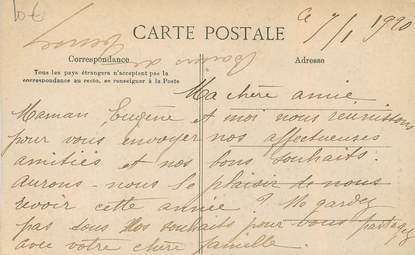 10€
CARTE POSTALE
Ce 7/1 1920
Correspondance
Adresse
Tous les pays étrangers n'acceptent pas la
correspondance au recto, se renseigner à la Poste
Ma chère amie
Maman, Eugène et moi nous réunissons
pour vous envoyer nos affectueuses
amitiés et nos bons souhaits.
Aurons-nous le plaisir de nous
revoir cette année ? Ne gardez
pas tous Nos souhaits pour vous partagez
avec votre chère famille.